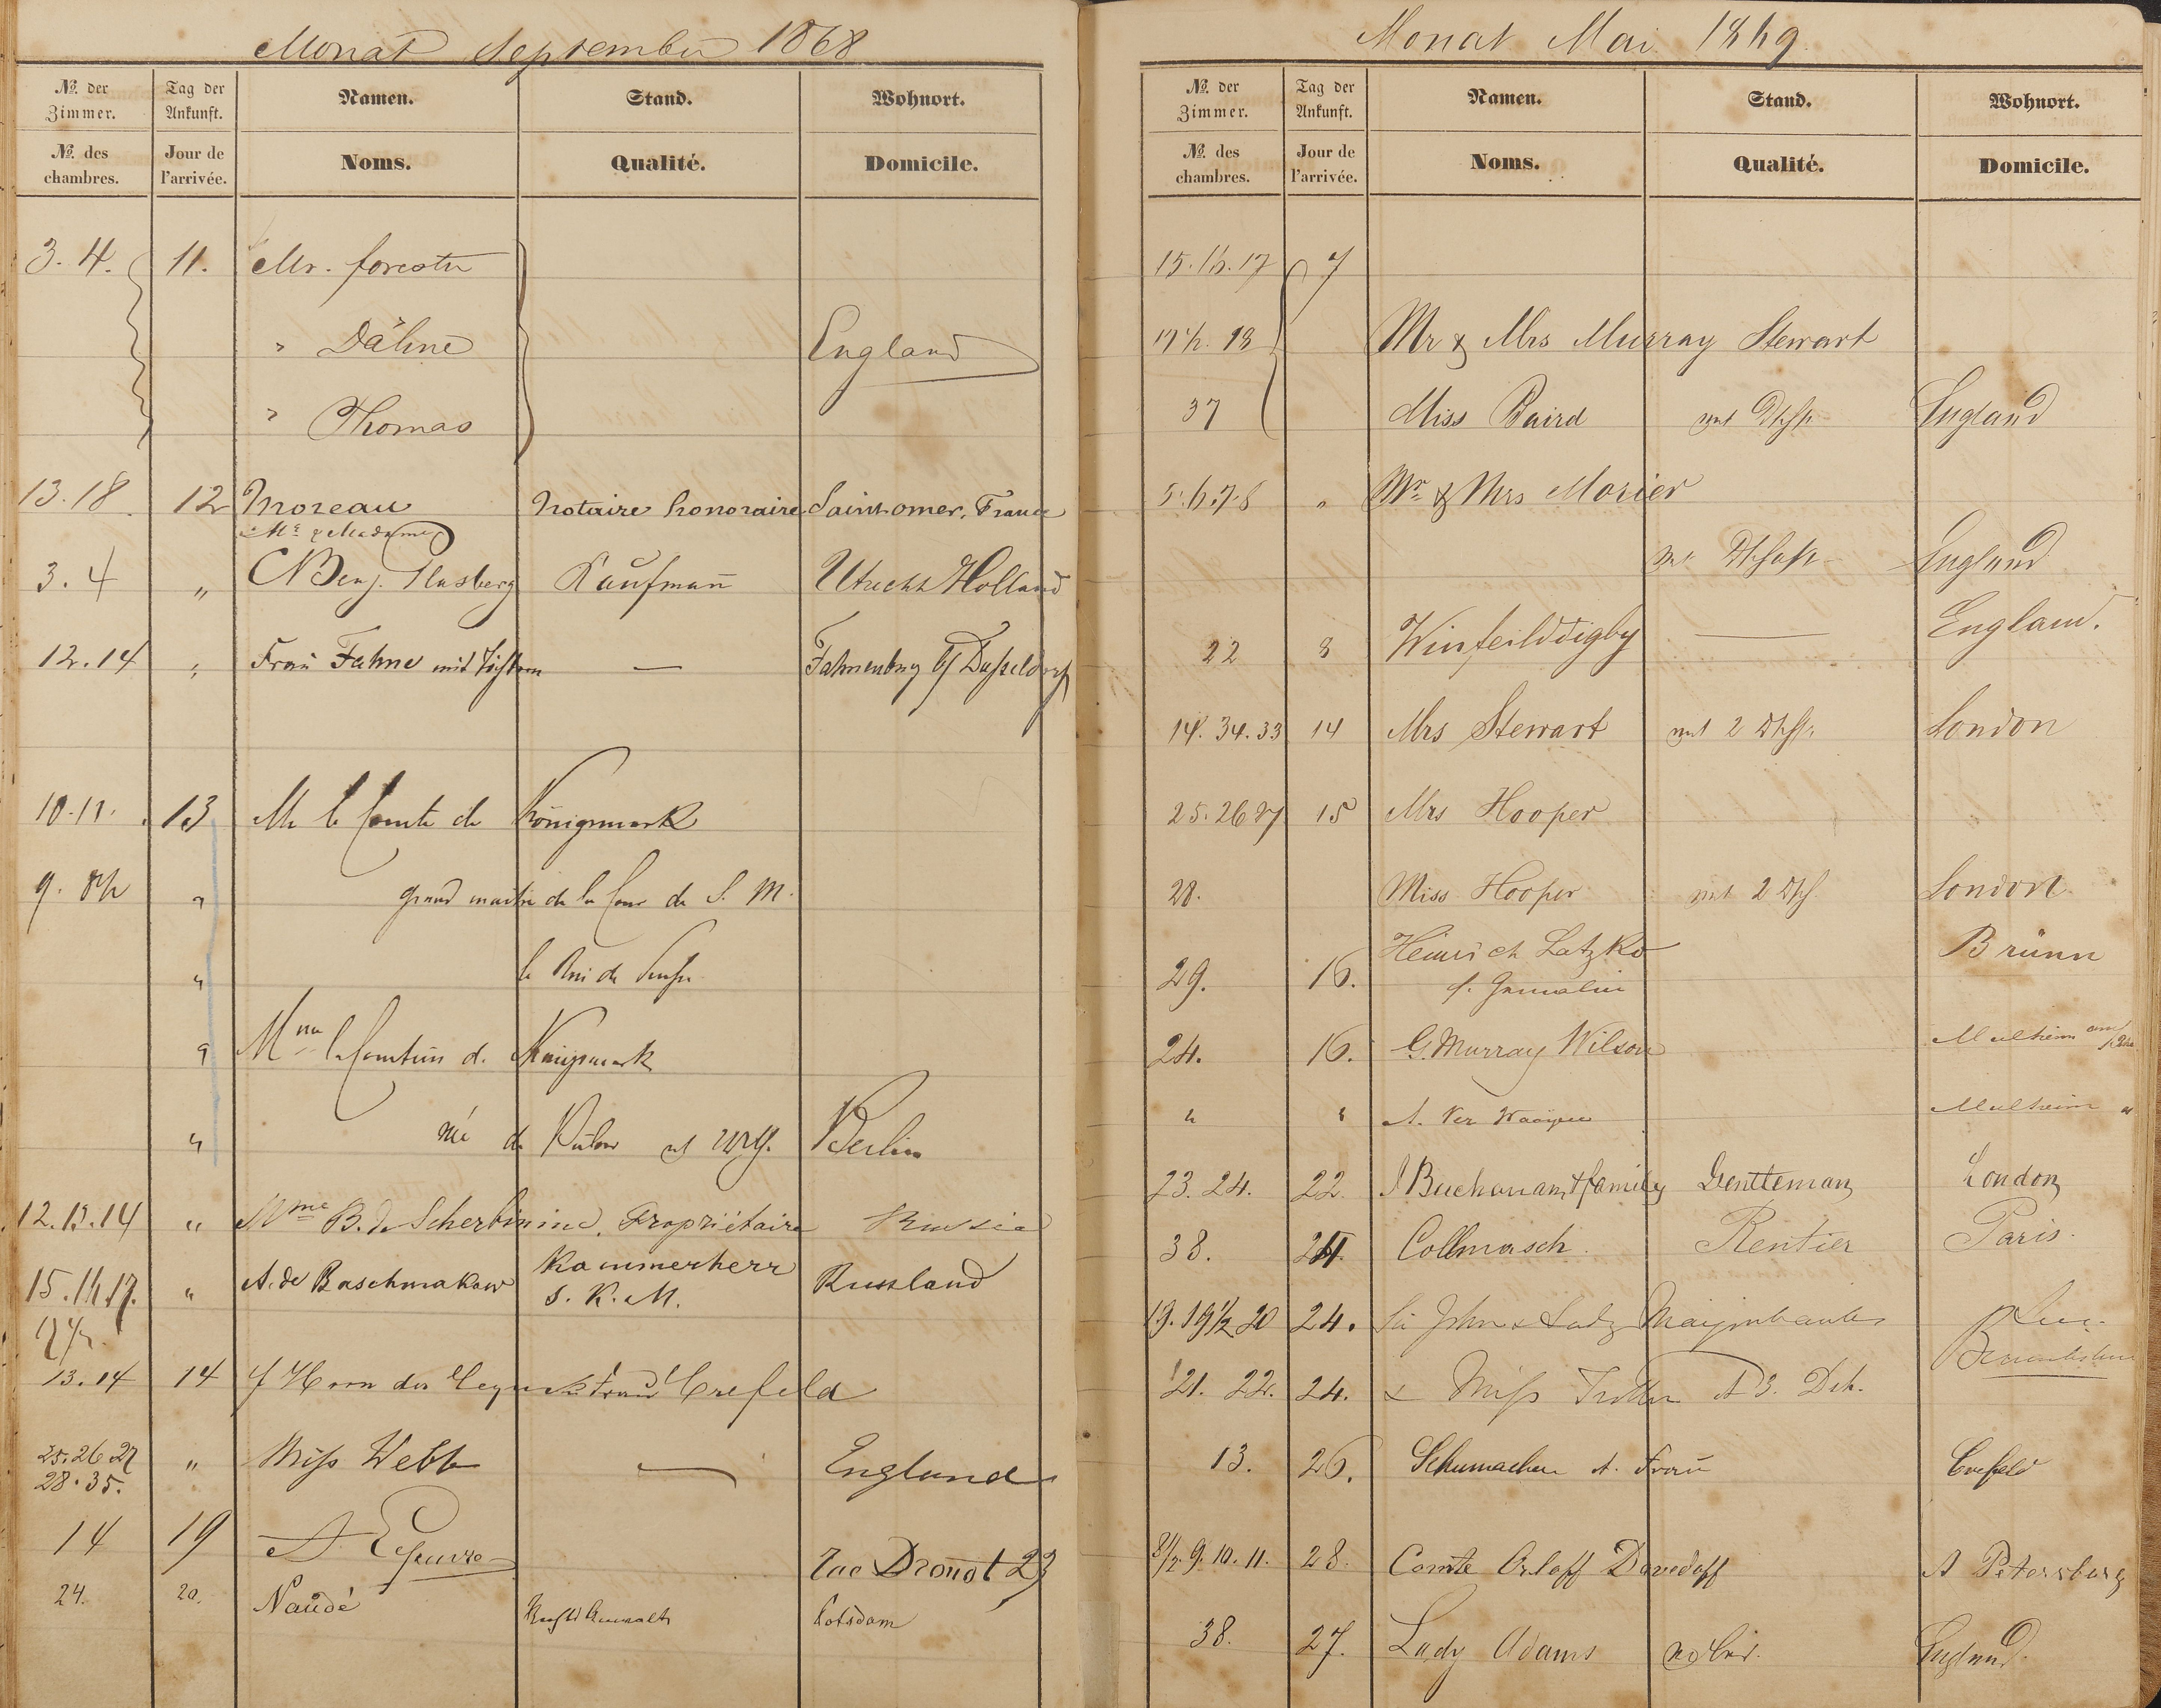 Monat September 1868
No. der Zimmer. Tag der Ankunft. Namen. Stand. Wohnort.
No. des chambres. Jour de l'arrivée. Noms. Qualité. Domicile.
3. 4. 11. Mr. forester
" Dähne England
" Thomas
13. 18. 12 Moreau Notaire honoraire Saint-omer, France
Mr & Madame
3. 4 " Benj. Kaufmann Utrecht Holland
12. 14 " Frau Fahne mit Töchtern — Fahnenburg b/ Dusseldorf
10. 11. 13 Mr le Comte de Königsmark
9. 8½ " grand maitre de la Cour de S. M.
" le Roi de
" Mme la Comtesse de
" née de Bülow Berlin
12. 13. 14 " Mme B. de Scherbinine, Propriétaire Russie
15. 16. 17. " A. de Baschmakow Kammerherr Russland
S. K. M.
17½.
13. 14 14 Frau Crefeld
25. 26 27 " Miss Webb — England
28. 35.
14 19 A. rue Drouot 23
24. 20. Naudé Potsdam
Monat Mai 1869
No. der Zimmer. Tag der Ankunft. Namen. Stand. Wohnort.
No. des chambres. Jour de l'arrivée. Noms. Qualité. Domicile.
15. 16. 17 7
17½. 18 Mr & Mrs Murray Stewart
37 Miss Baird mit England
5. 6. 7. 8 " Mr & Mrs Morier
England
22 8 Winfeilddigby — England.
14. 34. 33 14 Mrs Stewart mit 2 London
25. 26 27 15 Mrs Hooper
28. Miss Hooper mit 2 London
29. 16. Heinrich Latzko Brünn
s. Gemalin
24. 16. G. Murray Wilson Mulheim
" " A. Ver Mulheim "
23. 24. 22. J Buchanan & family Gentleman London
38. 24. Collmasch. Rentier Paris.
19. 19½ 20 24. Sir John & Lady
21. 22. 24. & Miss Trotter 3.
13. 26. Schumacher Frau Crefeld
8½. 9. 10. 11. 28. Comte Orloff Davidoff Petersburg
38. 27. Lady Adams England.